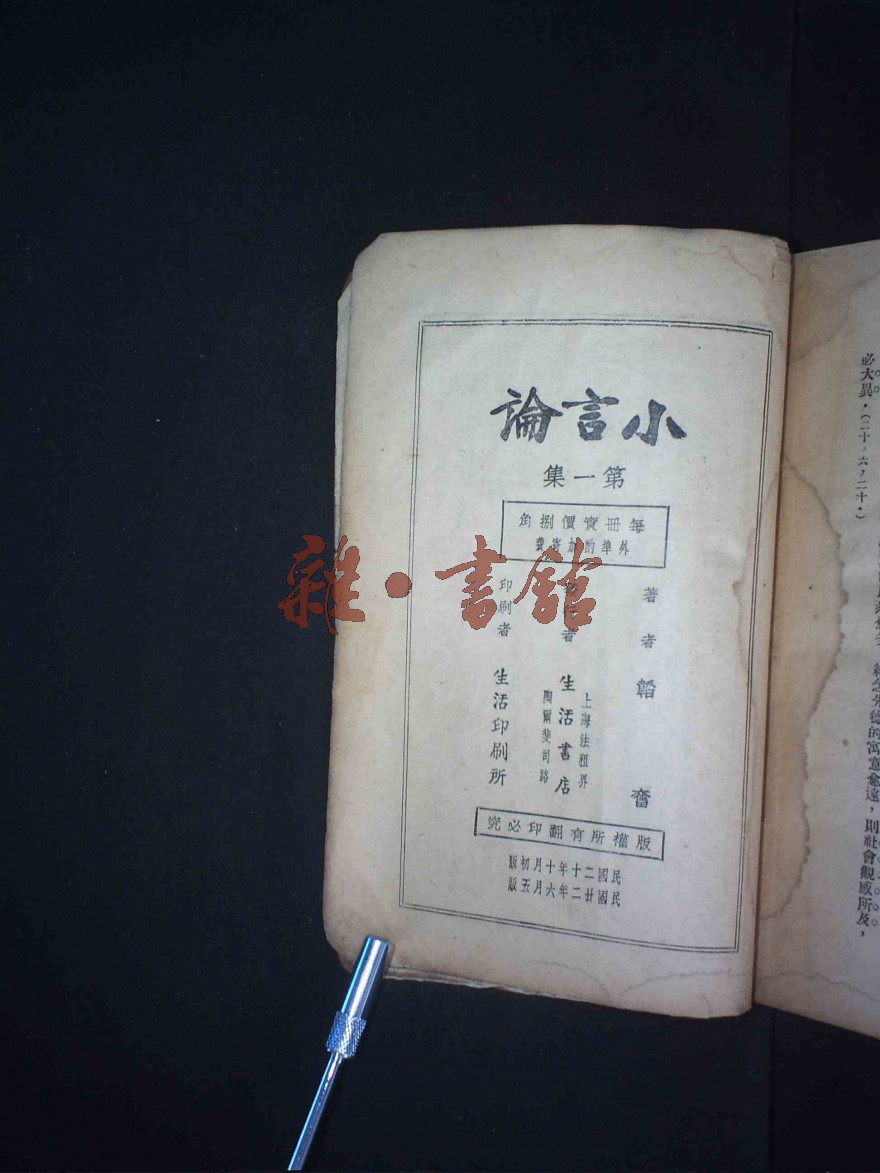 小言論
第一集
每冊實價捌角
外埠酌加寄費
著者 韜奮
者 生活書店
上海法租界
陶爾斐司路
印刷者 生活印刷所
版權所有翻印必究
民國二十年十月初版
民國廿二年六月五版
雜·書館
必大異.(二十,六,二十.)
念先德的寓意愈遠,則社會觀感所及,